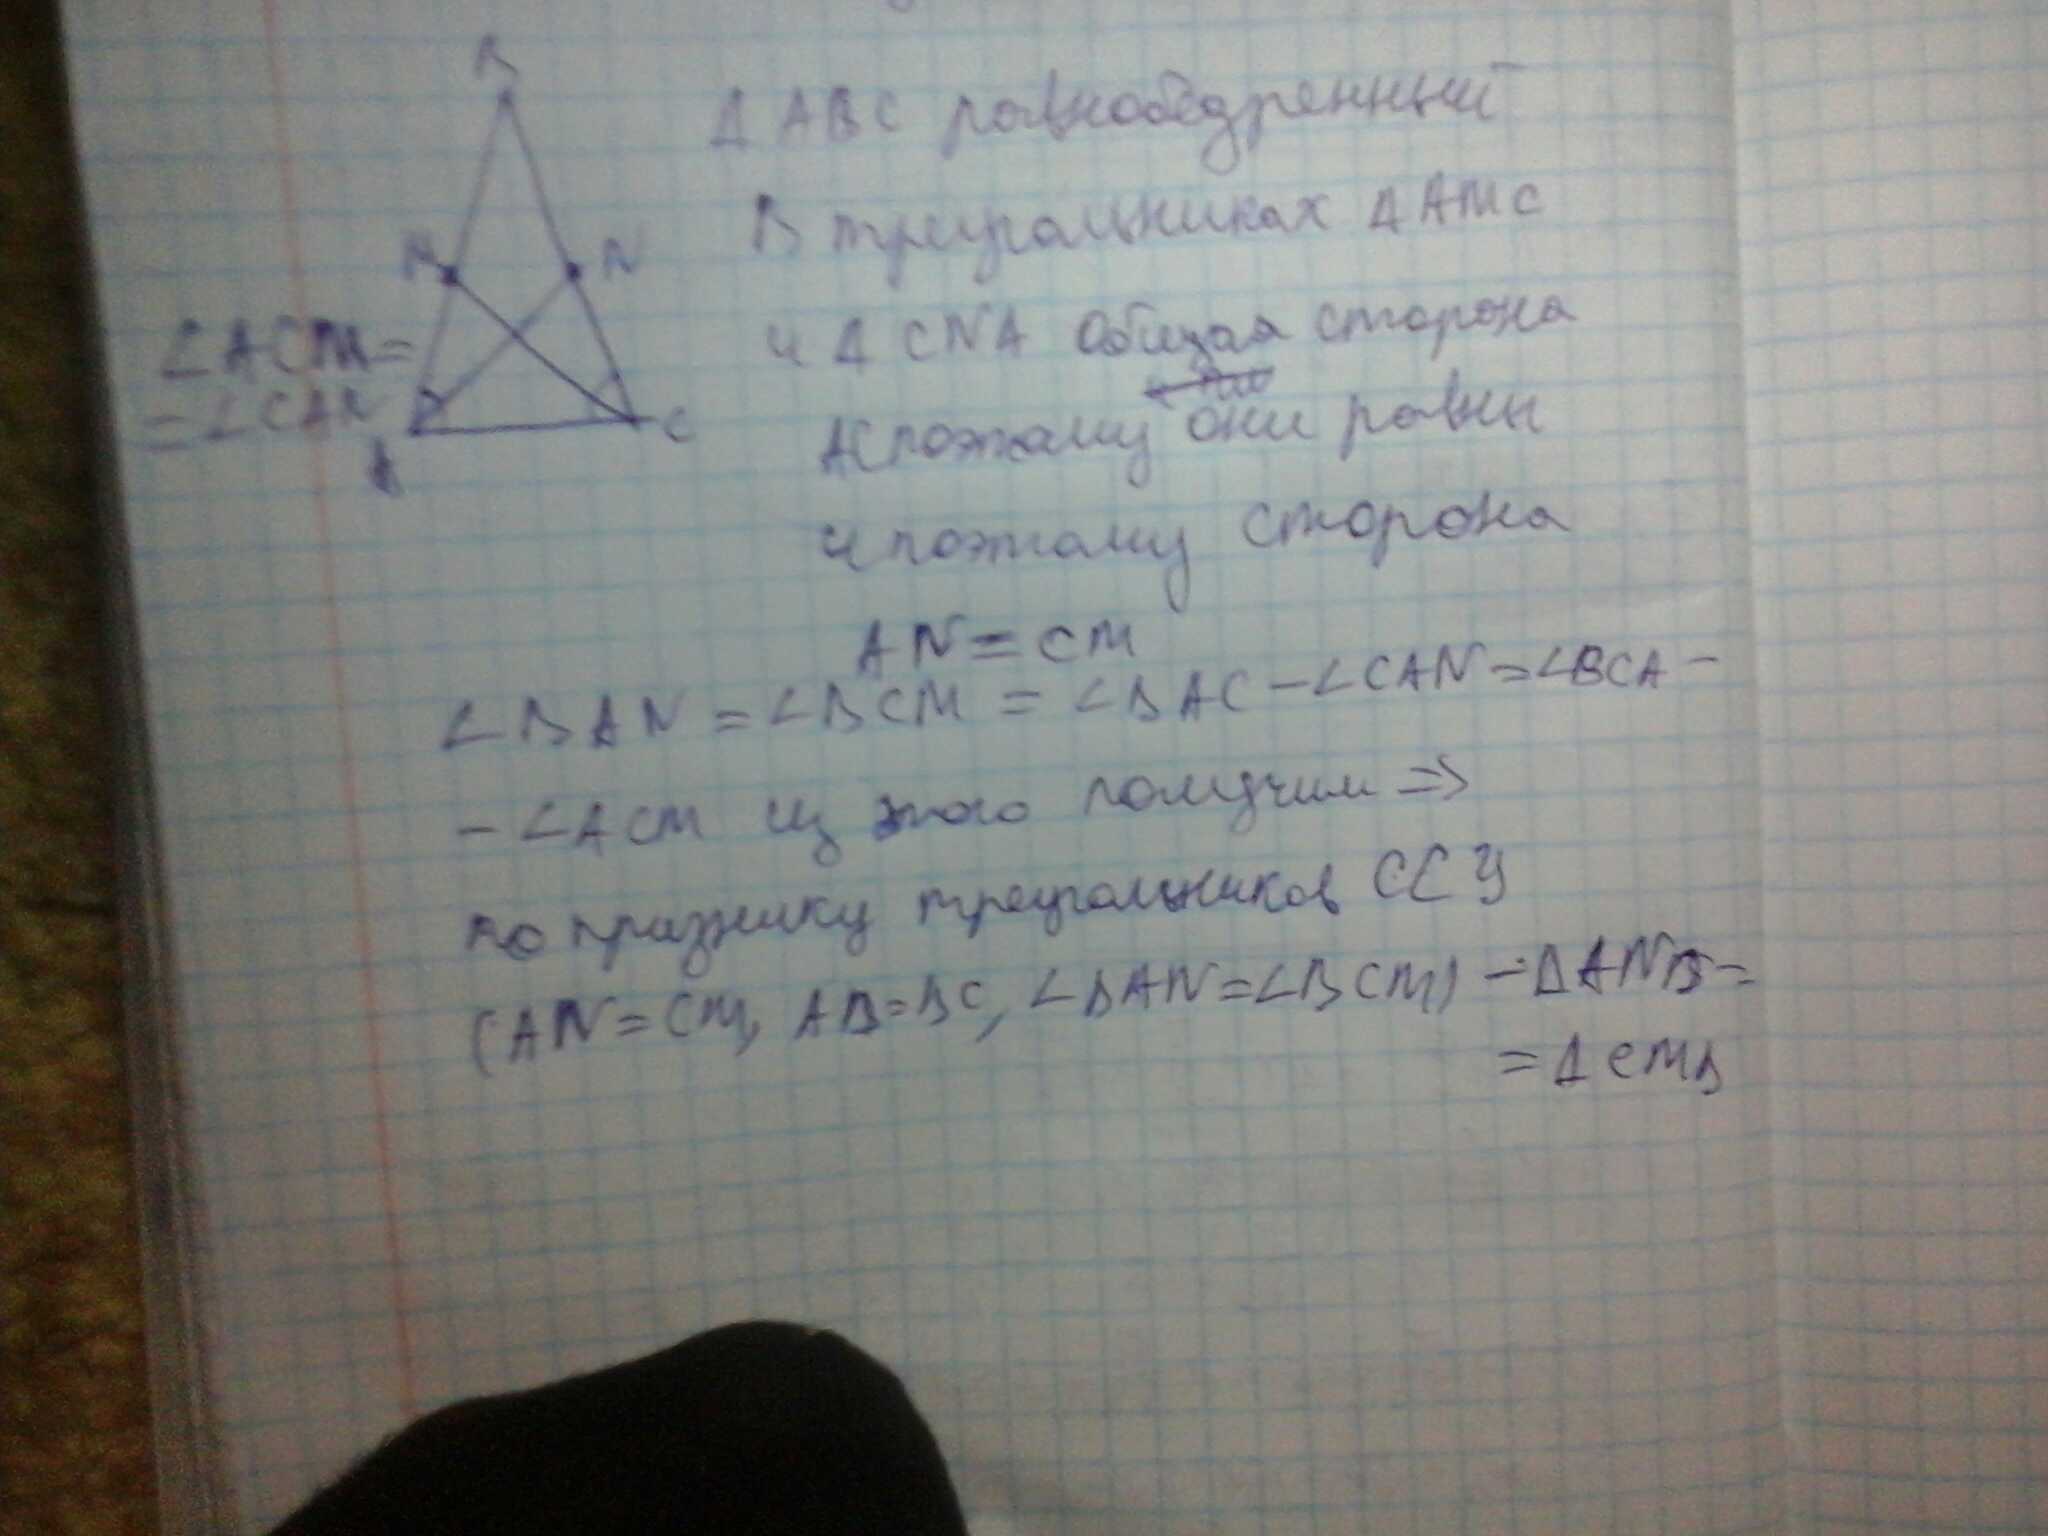 B
M N
A C
∠ACM =
= ∠CAN
Δ ABC равнобедренный
В треугольниках Δ AMC
и Δ CNA общая сторона
AC поэтому они равны
и поэтому сторона
AN = CM
∠BAN = ∠BCM = ∠BAC - ∠CAN = ∠BCA -
- ∠ACM из этого получим =>
по признаку треугольников ССУ
(AN = CM, AB = BC, ∠BAN = ∠BCM) - ΔANB =
= Δ CMB